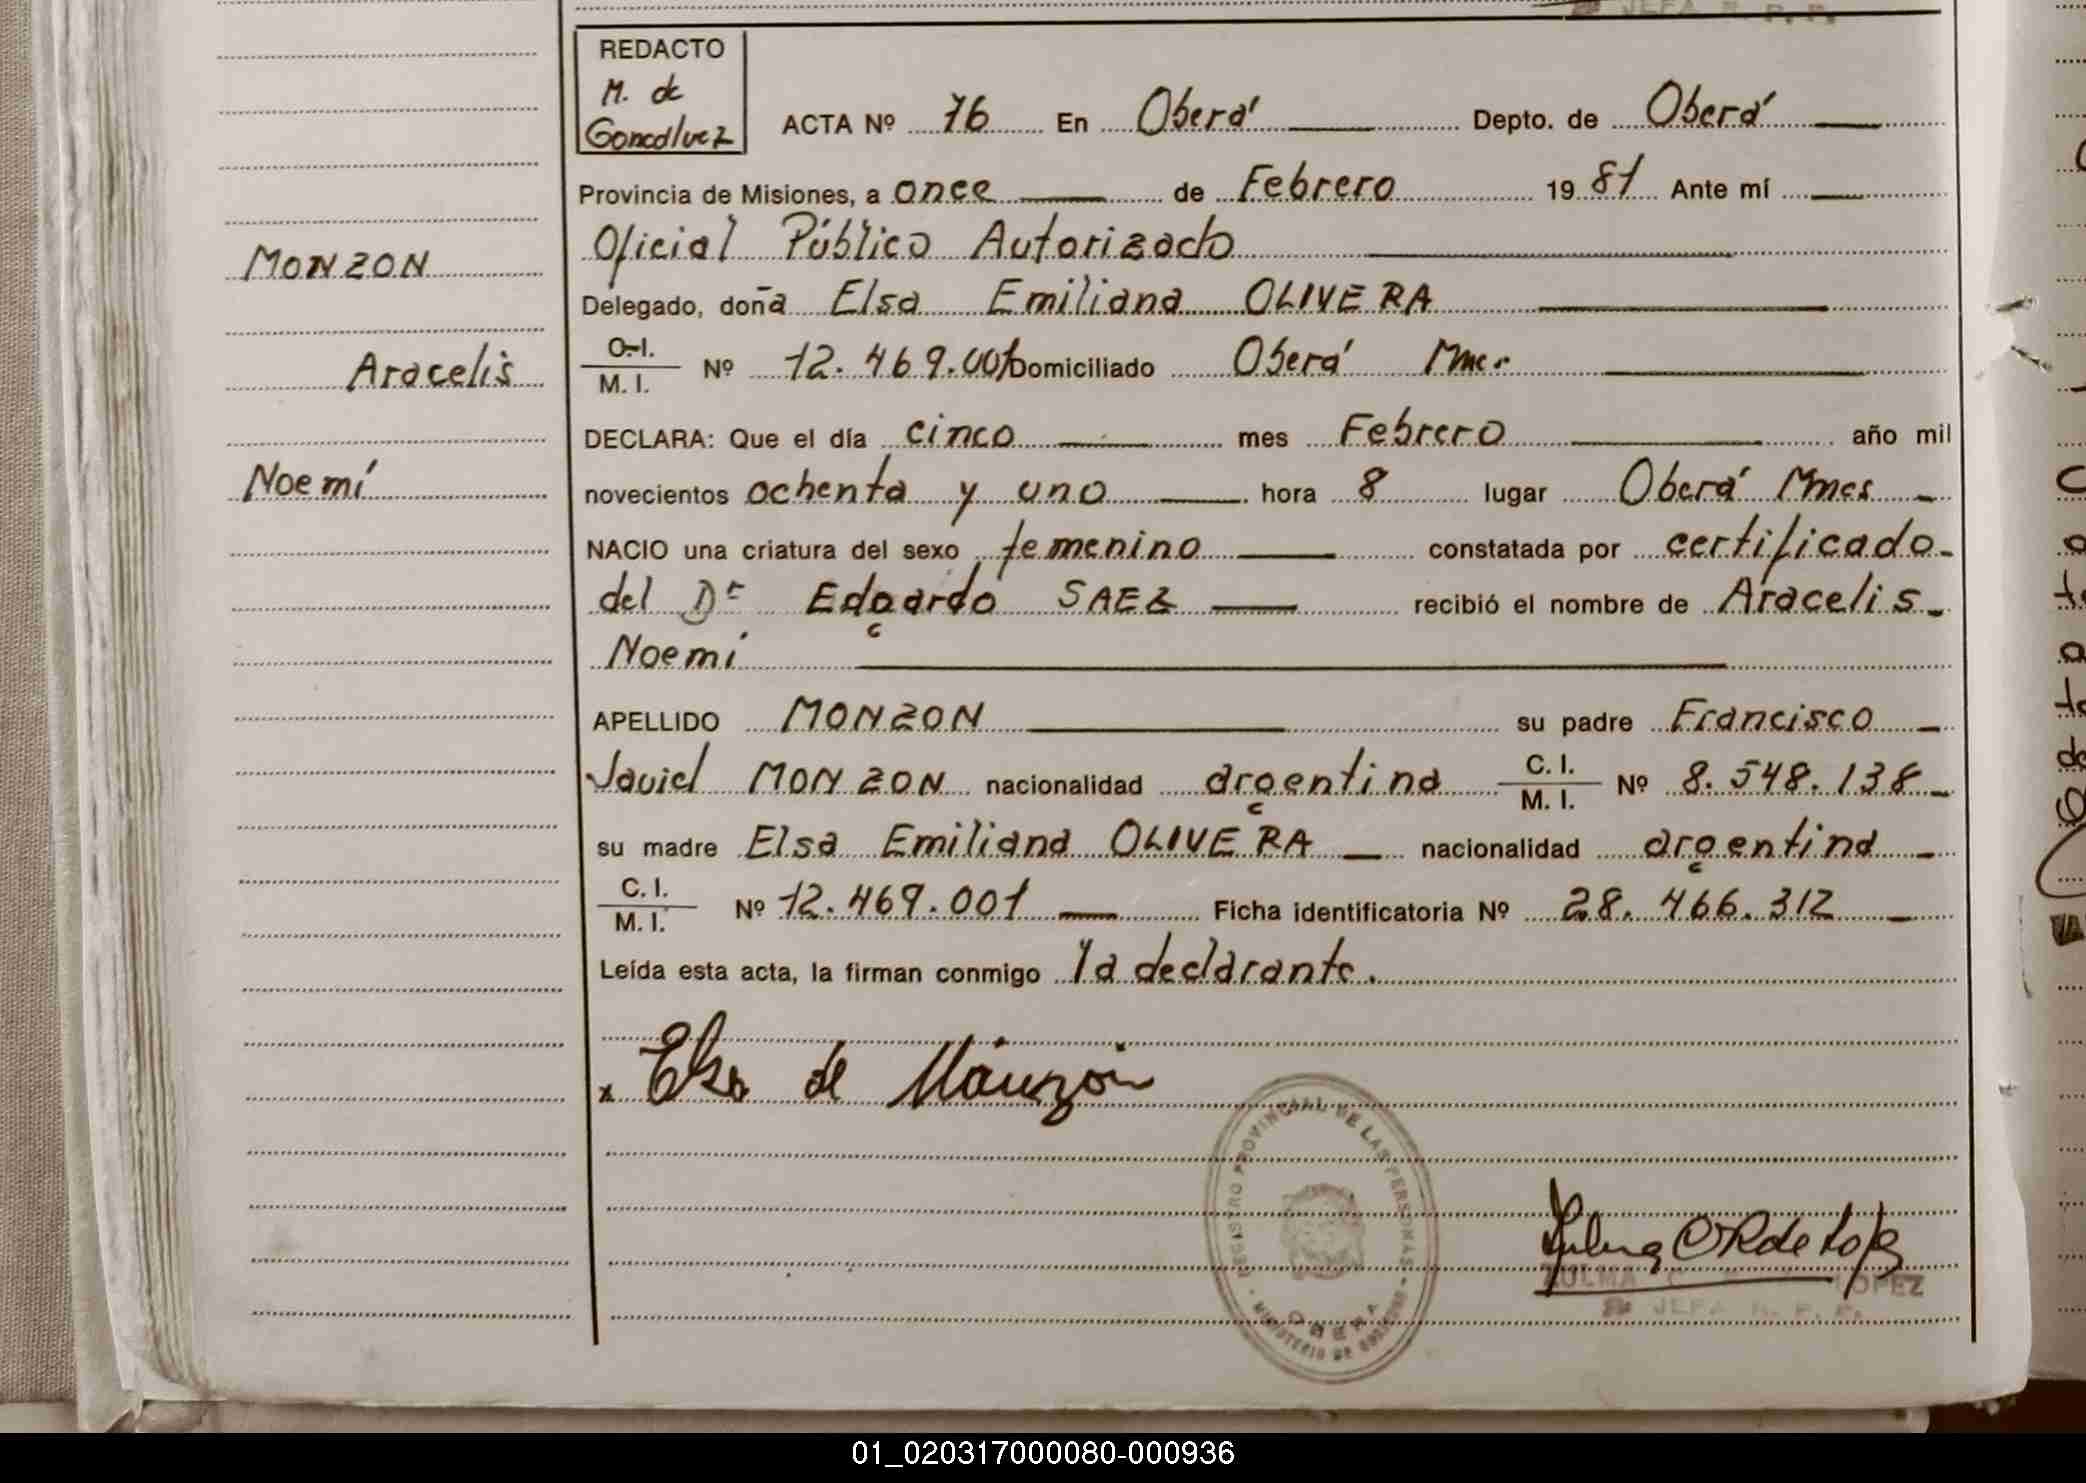 JEFA R. P. P.
REDACTO
M. de
Goncalvez
ACTA Nº 76 En Oberá Depto. de Oberá
Provincia de Misiones, a once de Febrero 1981 Ante mí
Oficial Público Autorizado
Delegado, doña Elsa Emiliana OLIVERA
C.I.
M. I. Nº 12.469.001 Domiciliado Oberá Mnes
DECLARA: Que el día cinco mes Febrero año mil
novecientos ochenta y uno hora 8 lugar Oberá Mnes
NACIO una criatura del sexo femenino constatada por certificado
del Dr Edgardo SAEZ recibió el nombre de Aracelis
Noemí
APELLIDO MONZON su padre Francisco
Javiel MONZON nacionalidad argentina C. I.
M. I. Nº 8.548.138
su madre Elsa Emiliana OLIVERA nacionalidad argentina
C. I.
M. I. Nº 12.469.001 Ficha identificatoria Nº 28.466.312
Leída esta acta, la firman conmigo la declarante.
x Elsa de Monzón
MONZON
Aracelis
Noemí
REGISTRO PROVINCIAL DE LAS PERSONAS
MINISTERIO DE GOBIERNO
OBERA
ZULMA C. LOPEZ
JEFA R. P. P.
01_020317000080-000936